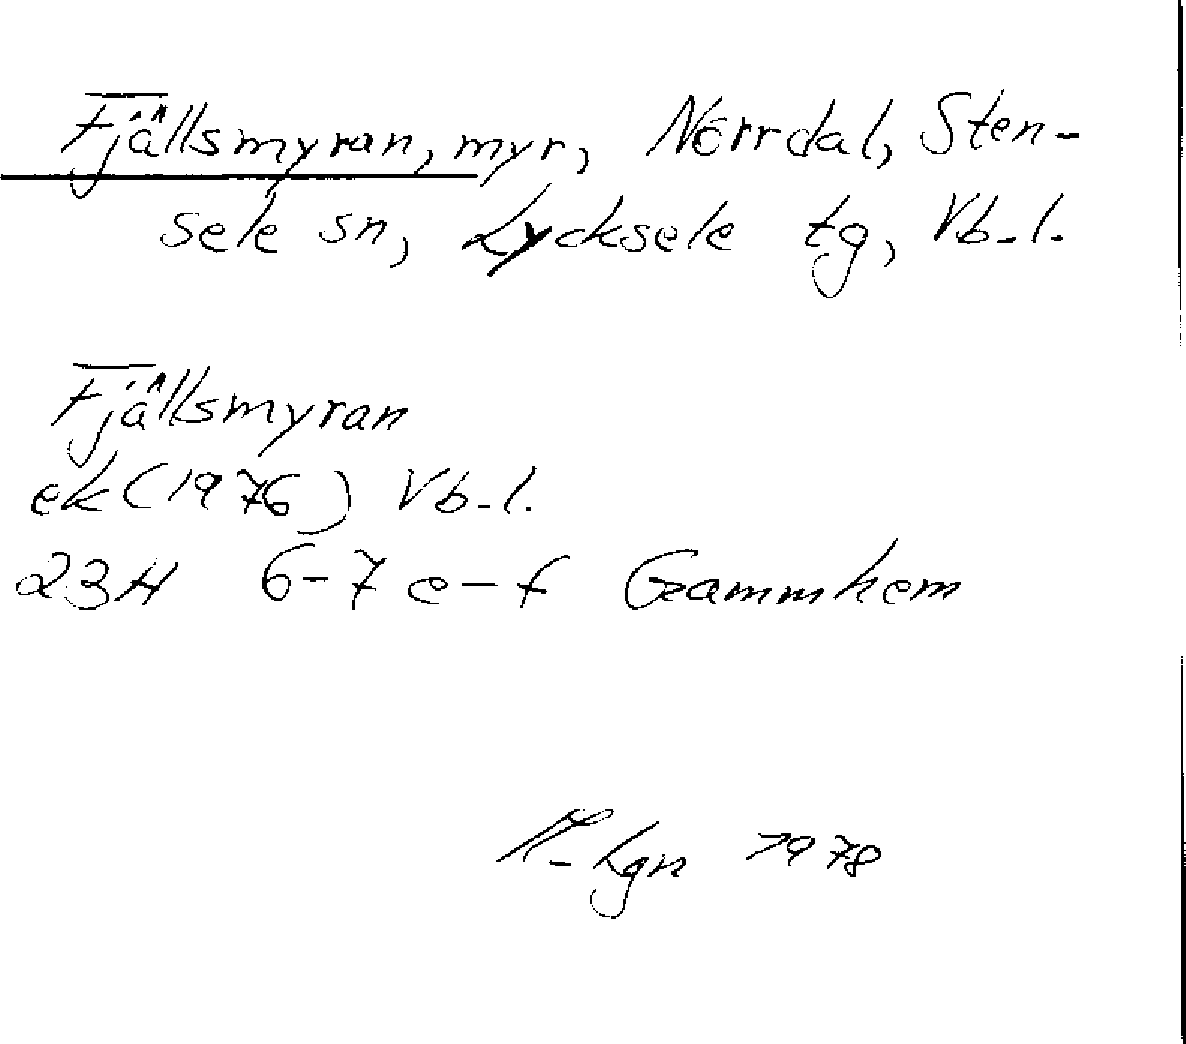 Fjällsmyran, myr, Norrdal, Sten-
sele sn, Lycksele tg, Vb.l.
Fjällsmyran
ek (1976) Vb.l.
23H 6-7 e-f Grammhem
1978